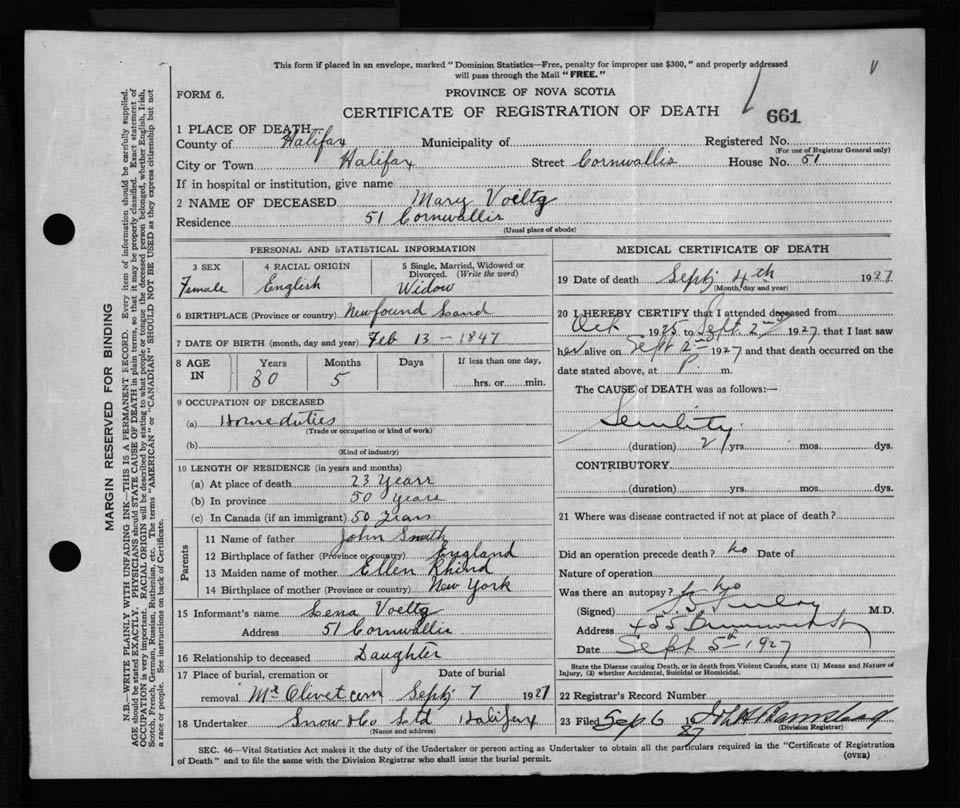 This form if placed in an envelope, marked "Dominion Statistics—Free, penalty for improper use $300," and properly addressed
will pass through the Mail "FREE."
FORM 6.
PROVINCE OF NOVA SCOTIA
CERTIFICATE OF REGISTRATION OF DEATH
661
1 PLACE OF DEATH
County of Halifax Municipality of Registered No.
(For use of Registrar General only)
City or Town Halifax Street Cornwallis House No. 51
If in hospital or institution, give name
2 NAME OF DECEASED Mary Voeltz
Residence 51 Cornwallis
(Usual place of abode)
PERSONAL AND STATISTICAL INFORMATION
3 SEX 4 RACIAL ORIGIN 5 Single, Married, Widowed or
Divorced. (Write the word)
Female English Widow
6 BIRTHPLACE (Province or country) Newfound Land
7 DATE OF BIRTH (month, day and year) Feb 13 – 1847
8 AGE IN Years Months Days If less than one day,
80 5 hrs. or min.
9 OCCUPATION OF DECEASED
(a) Home duties
(Trade or occupation or kind of work)
(b)
(Kind of industry)
10 LENGTH OF RESIDENCE (in years and months)
(a) At place of death 23 Years
(b) In province 50 Years
(c) In Canada (if an immigrant) 50 Years
Parents
11 Name of father John Smith
12 Birthplace of father (Province or country) England
13 Maiden name of mother Ellen Rhind
14 Birthplace of mother (Province or country) New York
15 Informant's name Lena Voeltz
Address 51 Cornwallis
16 Relationship to deceased Daughter
17 Place of burial, cremation or Date of burial
removal Mt Olivet cem Sept 7 1927
18 Undertaker Snow & Co Ltd Halifax
(Name and address)
MEDICAL CERTIFICATE OF DEATH
19 Date of death Sept 4th 1927
(Month, day and year)
20 I HEREBY CERTIFY that I attended deceased from
Oct 1925 to Sept 2nd 1927, that I last saw
her alive on Sept 2nd 1927 and that death occurred on the
date stated above, at P. m.
The CAUSE of DEATH was as follows:—
Senility
(duration) 2 yrs. mos. dys.
CONTRIBUTORY
(duration) yrs. mos. dys.
21 Where was disease contracted if not at place of death?
Did an operation precede death? No Date of
Nature of operation
Was there an autopsy? No
(Signed) M.D.
Address 455 Brunswick St
Date Sept 5th 1927
State the Disease causing Death, or in death from Violent Causes, state (1) Means and Nature of
Injury, (2) whether Accidental, Suicidal or Homicidal.
22 Registrar's Record Number
23 Filed Sep 6 1927
(Division Registrar)
SEC. 46—Vital Statistics Act makes it the duty of the Undertaker or person acting as Undertaker to obtain all the particulars required in the "Certificate of Registration
of Death" and to file the same with the Division Registrar who shall issue the burial permit. (OVER)
MARGIN RESERVED FOR BINDING
N.B.—WRITE PLAINLY WITH UNFADING INK—THIS IS A PERMANENT RECORD. Every item of information should be carefully supplied.
AGE should be stated EXACTLY. PHYSICIANS should STATE CAUSE OF DEATH in plain terms, so that it may be properly classified. Exact statement of
OCCUPATION is very important. RACIAL ORIGIN will be described by stating to what people or tongue the deceased person belonged, whether English, Irish,
Scotch, French, German, Russian, Ruthenian, etc. The terms "AMERICAN" or "CANADIAN" SHOULD NOT BE USED as they express citizenship but not
a race or people. See instructions on back of Certificate.